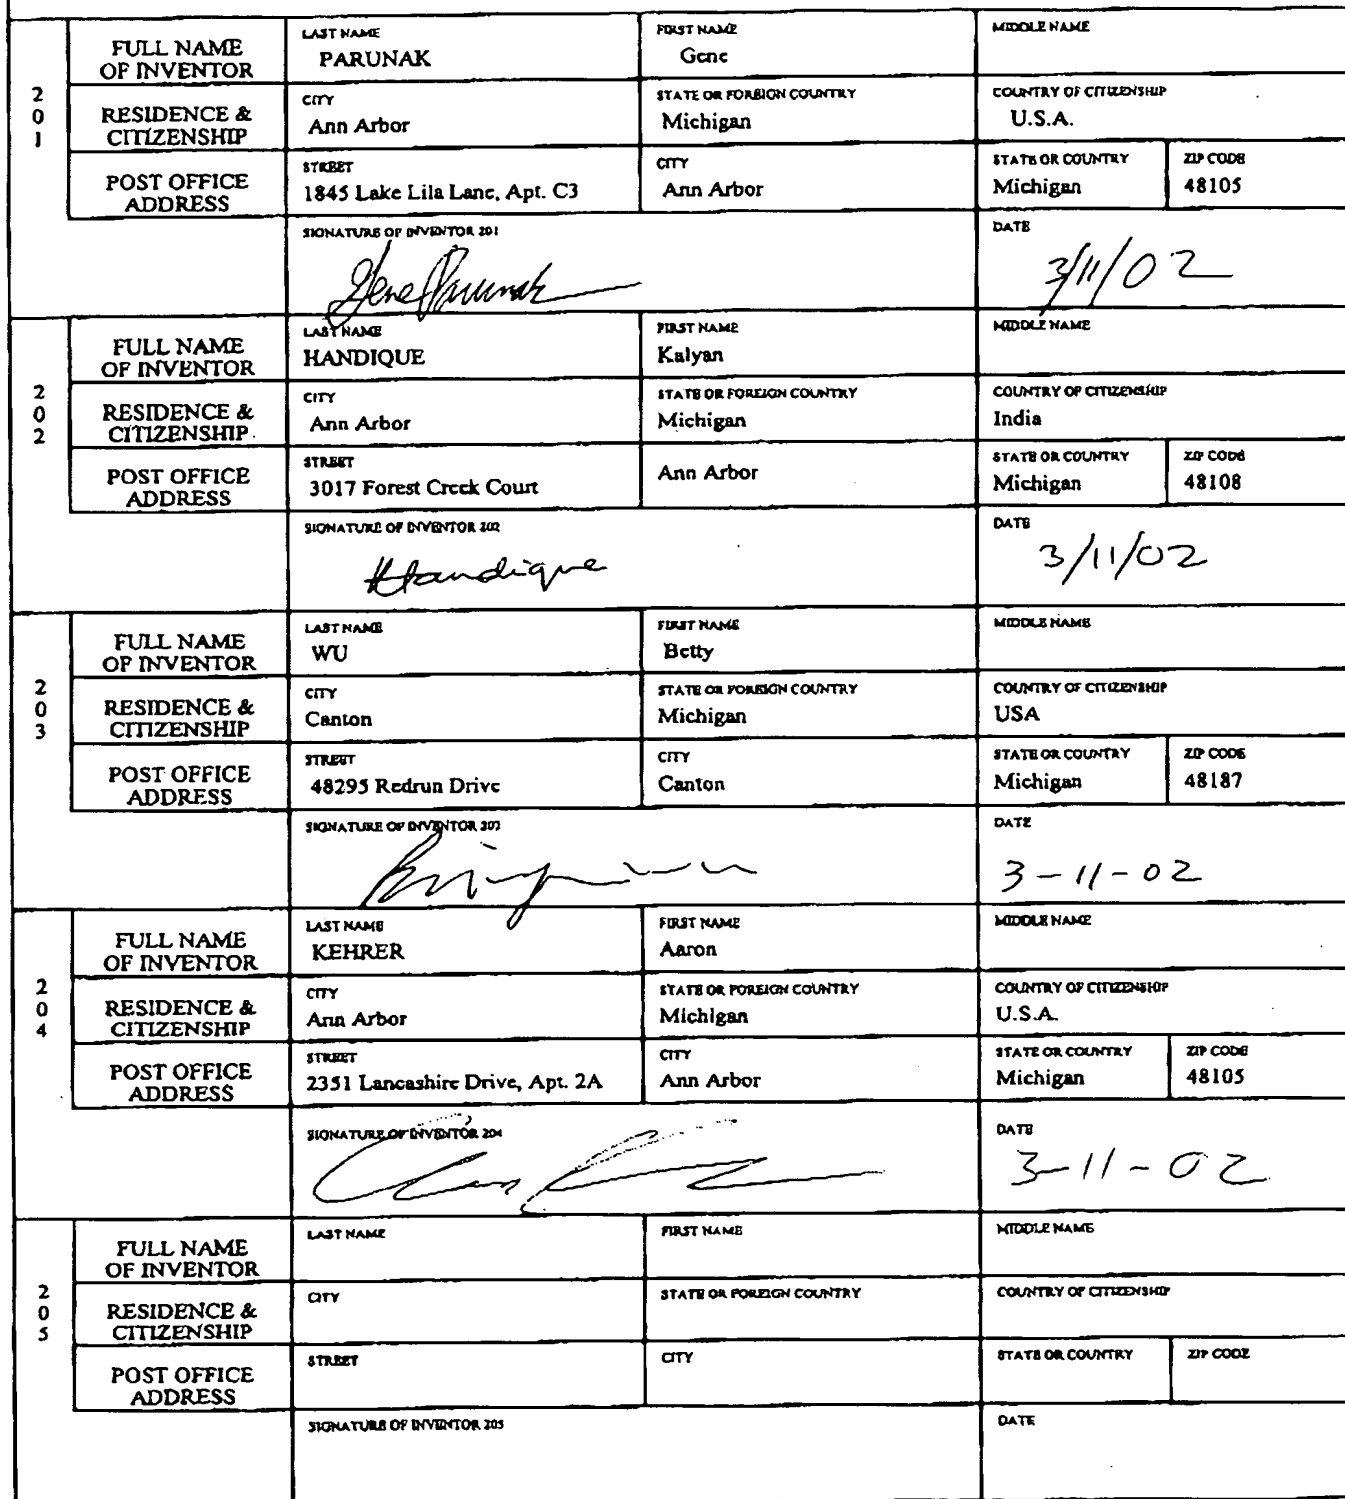 FULL NAME OF INVENTOR
LAST NAME
PARUNAK
FIRST NAME
Gene
MIDDLE NAME
201
RESIDENCE & CITIZENSHIP
CITY
Ann Arbor
STATE OR FOREIGN COUNTRY
Michigan
COUNTRY OF CITIZENSHIP
U.S.A.
POST OFFICE ADDRESS
STREET
1845 Lake Lila Lane, Apt. C3
CITY
Ann Arbor
STATE OR COUNTRY
Michigan
ZIP CODE
48105
SIGNATURE OF INVENTOR 201
Gene Parunak
DATE
3/11/02
FULL NAME OF INVENTOR
LAST NAME
HANDIQUE
FIRST NAME
Kalyan
MIDDLE NAME
202
RESIDENCE & CITIZENSHIP
CITY
Ann Arbor
STATE OR FOREIGN COUNTRY
Michigan
COUNTRY OF CITIZENSHIP
India
POST OFFICE ADDRESS
STREET
3017 Forest Creek Court
Ann Arbor
STATE OR COUNTRY
Michigan
ZIP CODE
48108
SIGNATURE OF INVENTOR 202
Handique
DATE
3/11/02
FULL NAME OF INVENTOR
LAST NAME
WU
FIRST NAME
Betty
MIDDLE NAME
203
RESIDENCE & CITIZENSHIP
CITY
Canton
STATE OR FOREIGN COUNTRY
Michigan
COUNTRY OF CITIZENSHIP
USA
POST OFFICE ADDRESS
STREET
48295 Redrun Drive
CITY
Canton
STATE OR COUNTRY
Michigan
ZIP CODE
48187
SIGNATURE OF INVENTOR 203
DATE
3-11-02
FULL NAME OF INVENTOR
LAST NAME
KEHRER
FIRST NAME
Aaron
MIDDLE NAME
204
RESIDENCE & CITIZENSHIP
CITY
Ann Arbor
STATE OR FOREIGN COUNTRY
Michigan
COUNTRY OF CITIZENSHIP
U.S.A.
POST OFFICE ADDRESS
STREET
2351 Lancashire Drive, Apt. 2A
CITY
Ann Arbor
STATE OR COUNTRY
Michigan
ZIP CODE
48105
SIGNATURE OF INVENTOR 204
DATE
3-11-02
FULL NAME OF INVENTOR
LAST NAME
FIRST NAME
MIDDLE NAME
205
RESIDENCE & CITIZENSHIP
CITY
STATE OR FOREIGN COUNTRY
COUNTRY OF CITIZENSHIP
POST OFFICE ADDRESS
STREET
CITY
STATE OR COUNTRY
ZIP CODE
SIGNATURE OF INVENTOR 205
DATE